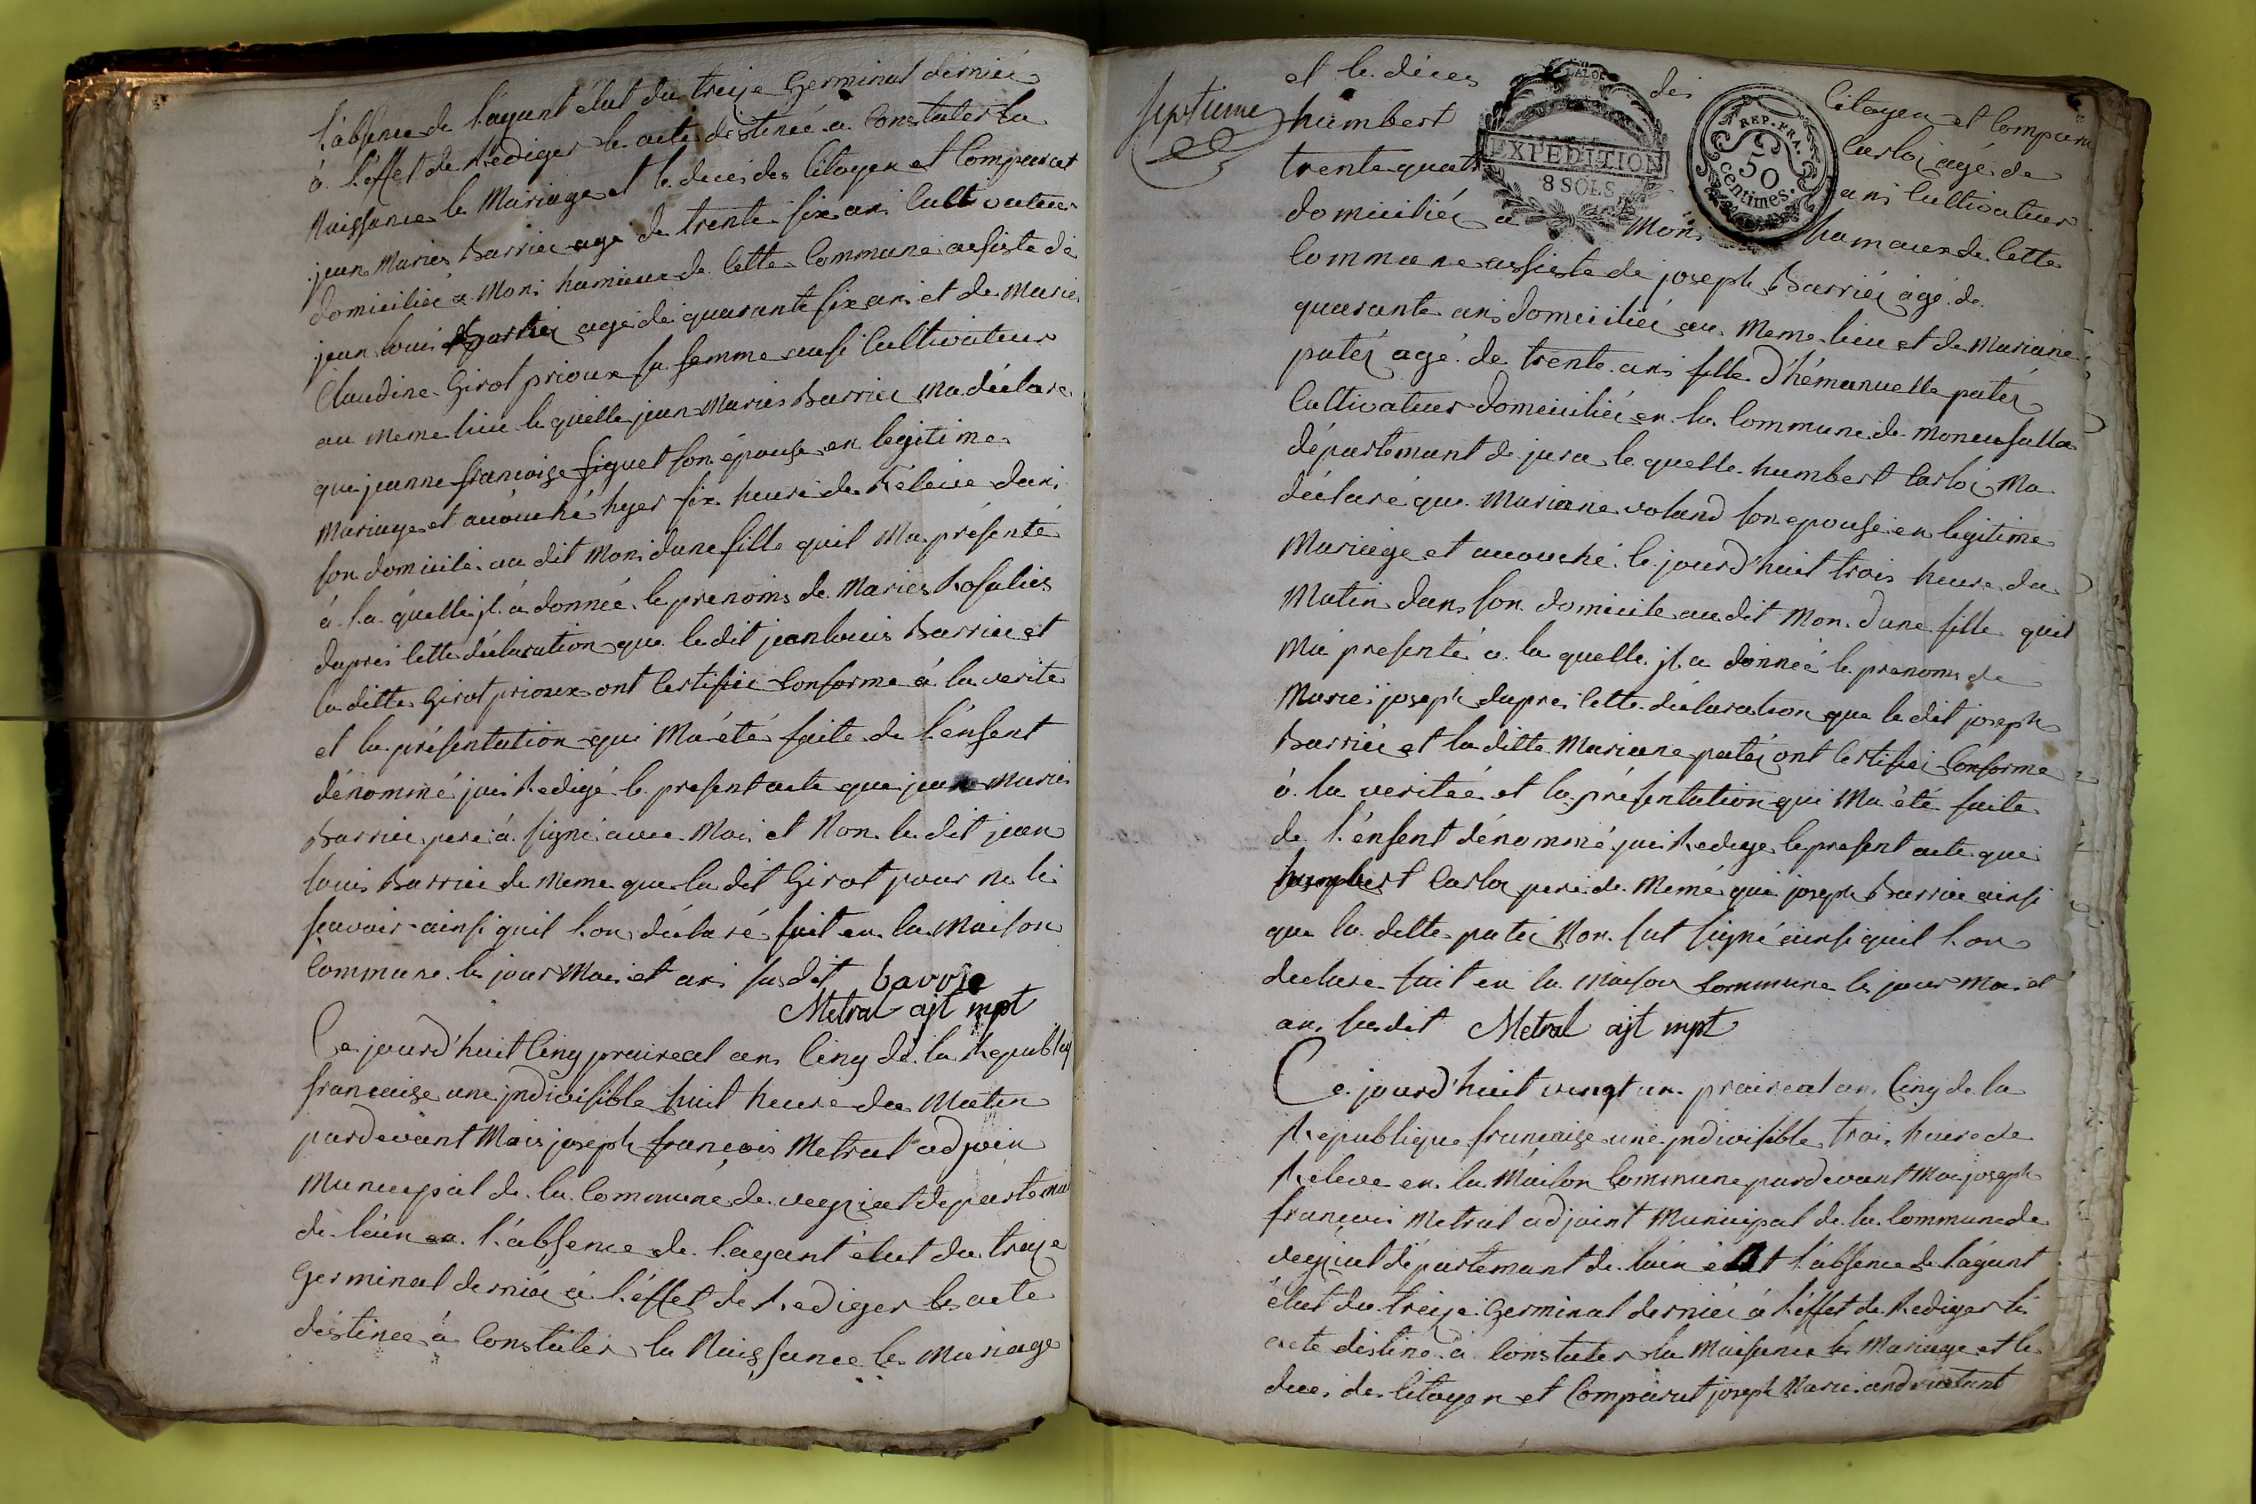 l'absence de l'agant élut du treize Germinal dernié
à l'effet de Rédiger le acte destinée a Constater la
Naissance le Mariage et le deces des Citoyen et Comparut
jean Maries Barrier agé de trente six ans Cultivateur
domiciliée a Mons hamieux de Cette Commune assisté de
jean louis agé de quarante six ans et de Marie
Claudine Girot prioux sa femme aussi Cultivateur
au meme lieu le quelle jean Maries Barrier Ma déclaré
que jeanne francoise figuet son épouse en legitime
Mariage et acouché hyer six heure de Relevée dans
son domicile au dit Mons dune fille quil Ma présenté
à la quelle jl à donnée le prenoms de Maries Rosalies
dapres Cette déclaration que le dit jean louis Barrier et
la ditte Girot prioux ont Certifiée Conforme à la verite
et la présentation qui Ma été faite de l'énfent
dénommé jai Redigé le present acte que jean Maries
Barrier pere à signé avec Moi et Non le dit jean
louis Barrier de Meme que la dit Girot pour ne le
scavoir ainsi quil l'on déclaré fait en la Maison
Commune le jour Mois et ans susdit barrie
Metral ajt mpt
Ce jourd'huit Cinq praireal ans Cinq de la Republiq
francaise une jndivisible huit heure du Matin
pardevant Mois joseph francois Metral adjoin
Municipal de la Commune de veyziat departemant
de léin en l'absence de l'agant élut du treize
Germinal dernié à l'éffet de Rediger le acte
déstinee à Constater la Naissance le Mariage
et le déces des Citoyen et Comparu
septieme humbert Carloz agé de
trente quatre ans Cultivateur
domiciliéz a Mons hamaux de Cette
Commune assisté de joseph Barriéz agé de
quarante ans domiciliéz au Meme lieu et de Mariane
patéz agé de trente ans fille d'hémanuelle patéz
Cultivateur domiciliée en la Commune de
département de jura le quelle humbert Carloz Ma
déclaré que Mariane voland son épouse en legitime
Mariage et acouché le jourd'huit trois heure du
Matin dans son domicile au dit Mon dune fille quil
Ma présenté a la quelle jl a donneé le prenoms de
Marie joseph dapres Cette déclaration que le dit joseph
Barriée et la ditte Mariane patéz ont Certifiéi Conforme
à la veritée et la présentation qui Ma été faite
de l'énfent dénommé jai Redige le present acte que
humbert Carloz pere de Meme que joseph Barrier ainsi
que la ditte patéz Non sut signé ainsi quil l'on
declaré fait en la Maison Commune le jour Mois et
ans susdit Metral ajt mpt
Ce jourd'huit vingt un praireal ans Cinq de la
Republique francaise une jndivisible trois heure de
Releve en la Maison Commune pardevant Moi joseph
françois Metral adjoint Municipal de la Commune de
veyziat département de lain l'absence de l'agant
élut du treize Germinal derniée à l'éffet de Rediger le
acte destiné à Constater la Naisance le Mariage et le
dece des Citoyen et Comparut joseph Marie
EXPEDITION
8 SOLS
REP. FRA.
50
centimes.